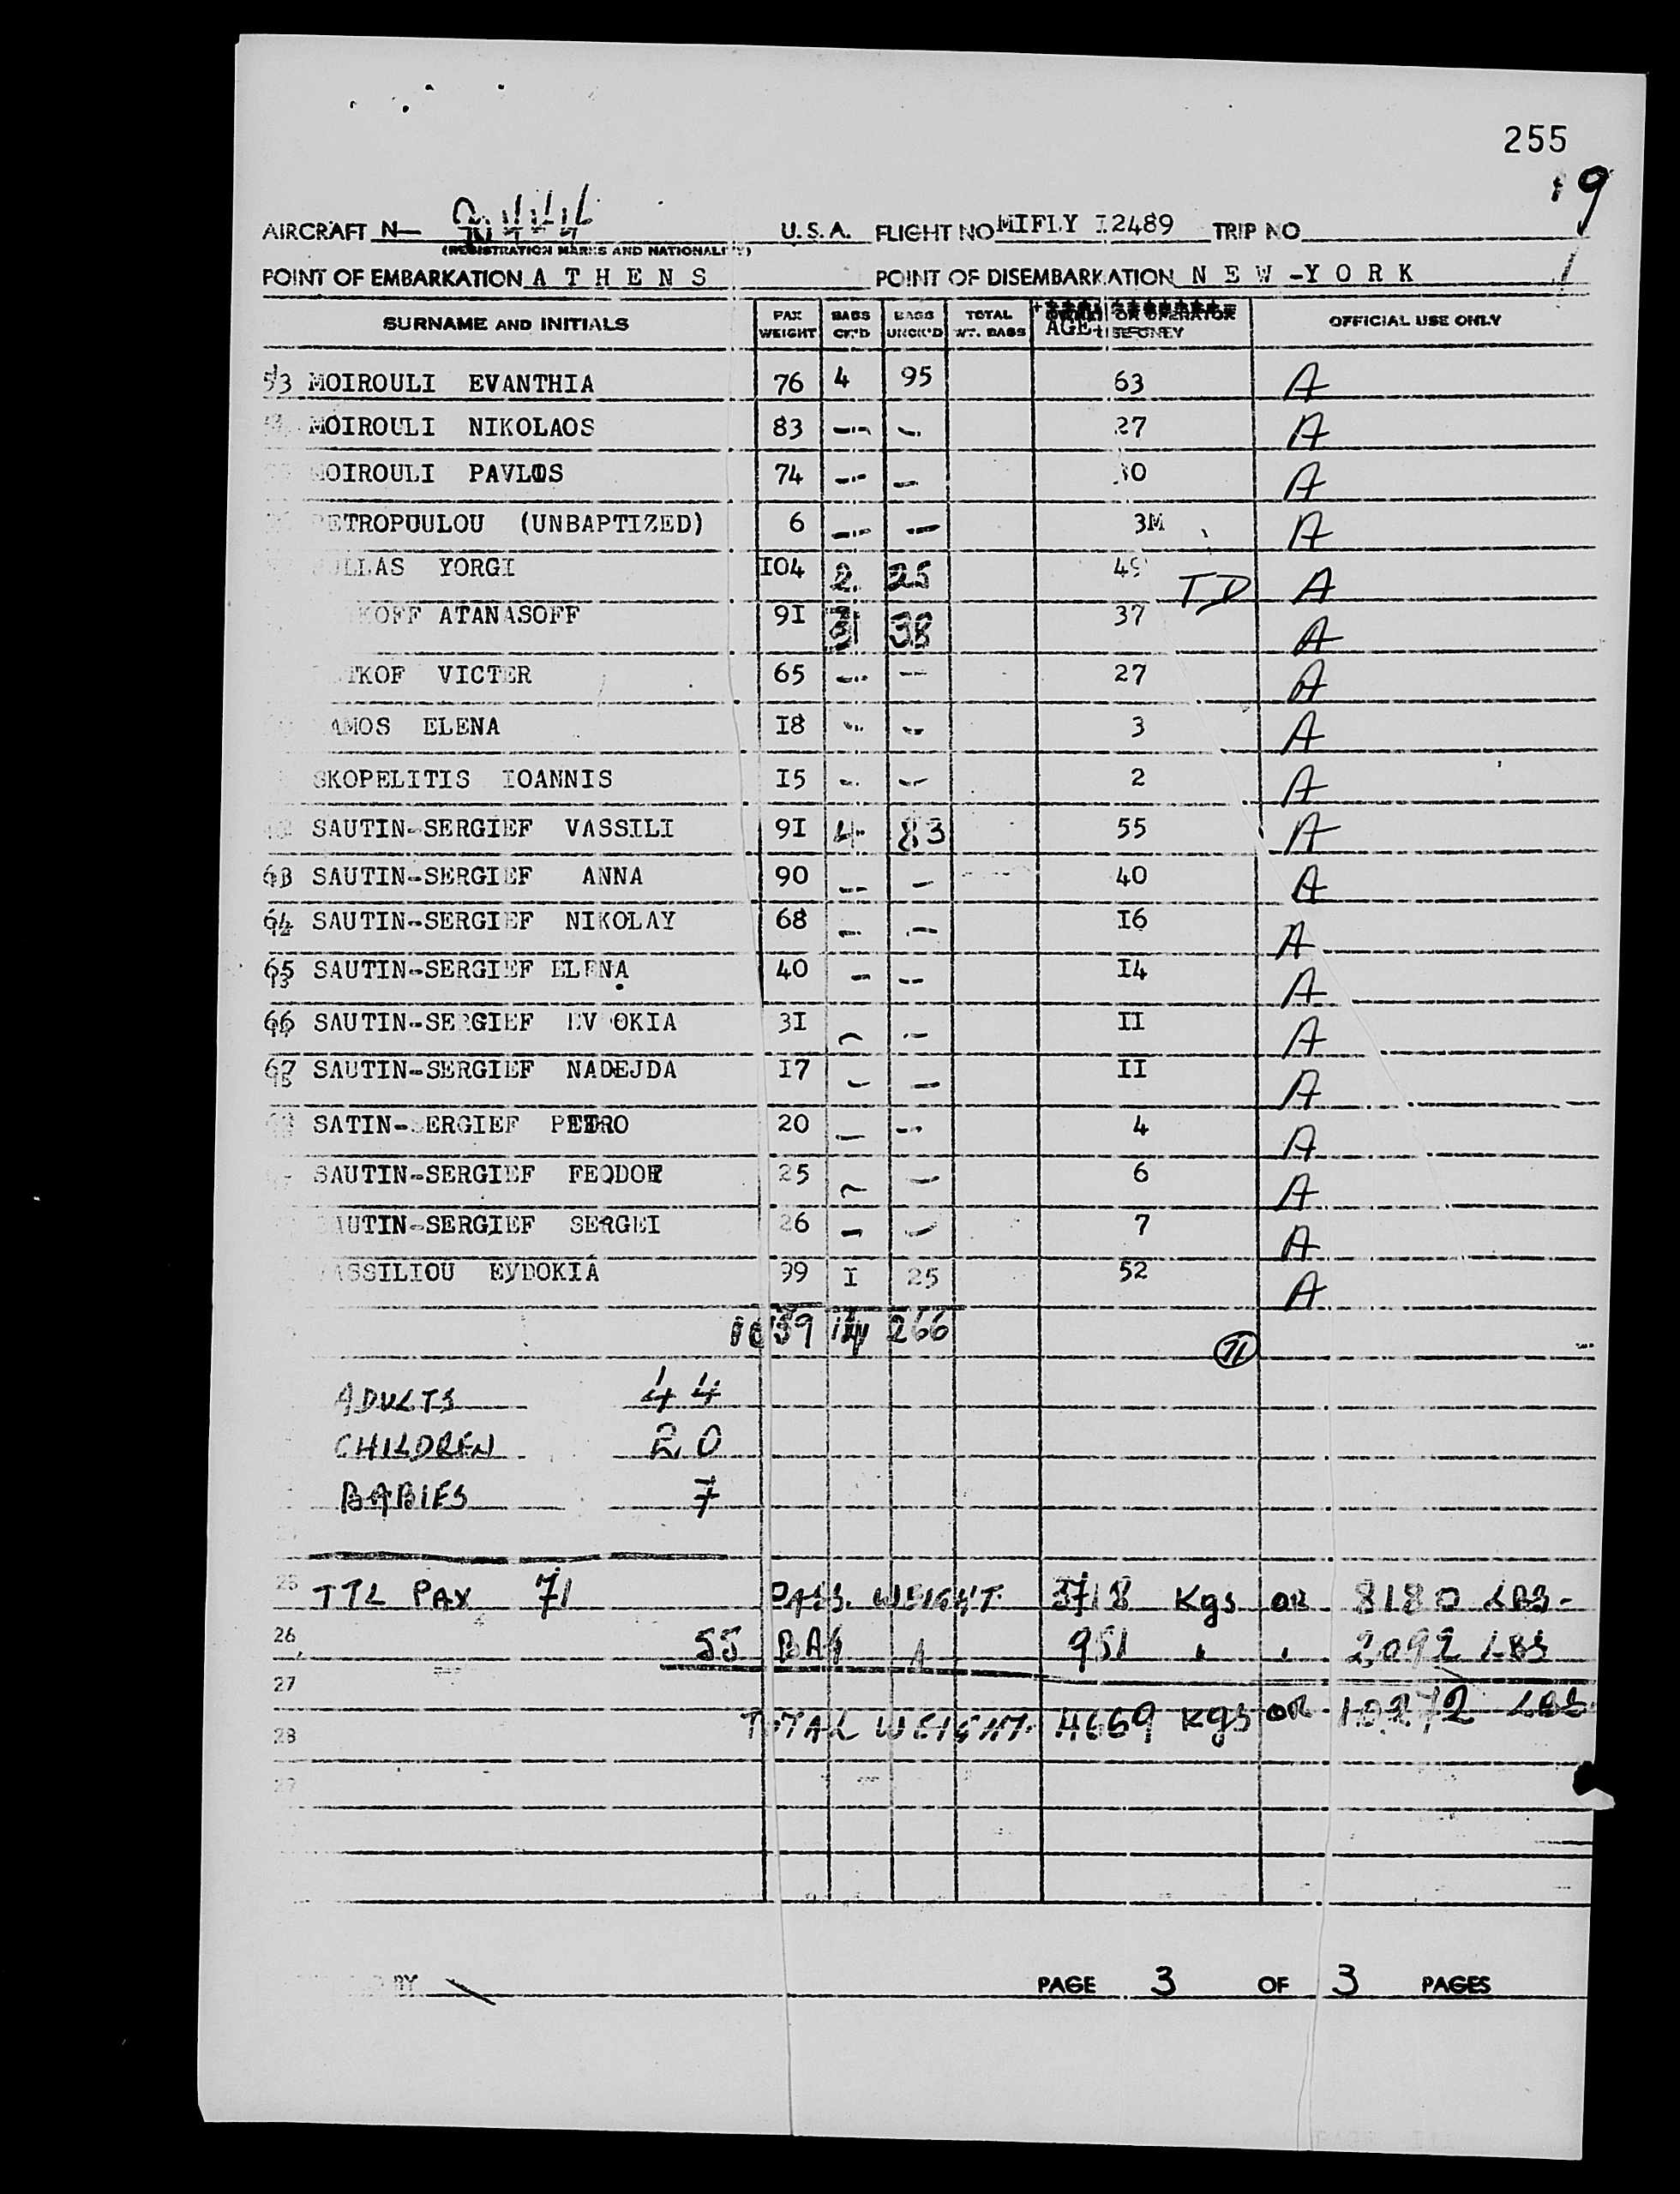 255
9
AIRCRAFT N— U.S.A. FLIGHT NO MIFLY I2489 TRIP NO
(REGISTRATION MARKS AND NATIONALITY)
POINT OF EMBARKATION A T H E N S POINT OF DISEMBARKATION N E W - Y O R K
SURNAME AND INITIALS PAX WEIGHT BAGS CK'D BAGS UNCK'D TOTAL WT. BAGS AGE OR OPERATOR USE ONLY OFFICIAL USE ONLY
53 MOIROULI EVANTHIA 76 4 95 63 A
MOIROULI NIKOLAOS 83 — — 27 A
MOIROULI PAVLOS 74 — — A
PETROPOULOU (UNBAPTIZED) 6 — — 3M A
YORGI I04 2 25 49 TD A
ATANASOFF 9I 3 38 37 A
VICTER 65 — — 27 A
ELENA I8 — — 3 A
SKOPELITIS IOANNIS I5 — — 2 A
SAUTIN-SERGIEF VASSILI 9I 4 83 55 A
63 SAUTIN-SERGIEF ANNA 90 — — 40 A
64 SAUTIN-SERGIEF NIKOLAY 68 — — I6 A
65 SAUTIN-SERGIEF ELENA 40 — — I4 A
66 SAUTIN-SERGIEF EVDOKIA 3I — — II A
67 SAUTIN-SERGIEF NADEJDA I7 — — II A
SATIN-SERGIEF PETRO 20 — — 4 A
SAUTIN-SERGIEF FEODOR 25 — — 6 A
SAUTIN-SERGIEF SERGEI 26 — — 7 A
VASSILIOU EVDOKIA 99 I 25 52 A
14 266
71
ADULTS 44
CHILDREN 20
BABIES 7
25 TTL PAX 71 PASS. WEIGHT 3718 Kgs OR 8180 LBS-
26 55 BAG 951 2092 LBS
27
TOTAL WEIGHT 4669 Kgs OR 10272 LBS
28
29
BY
PAGE 3 OF 3 PAGES